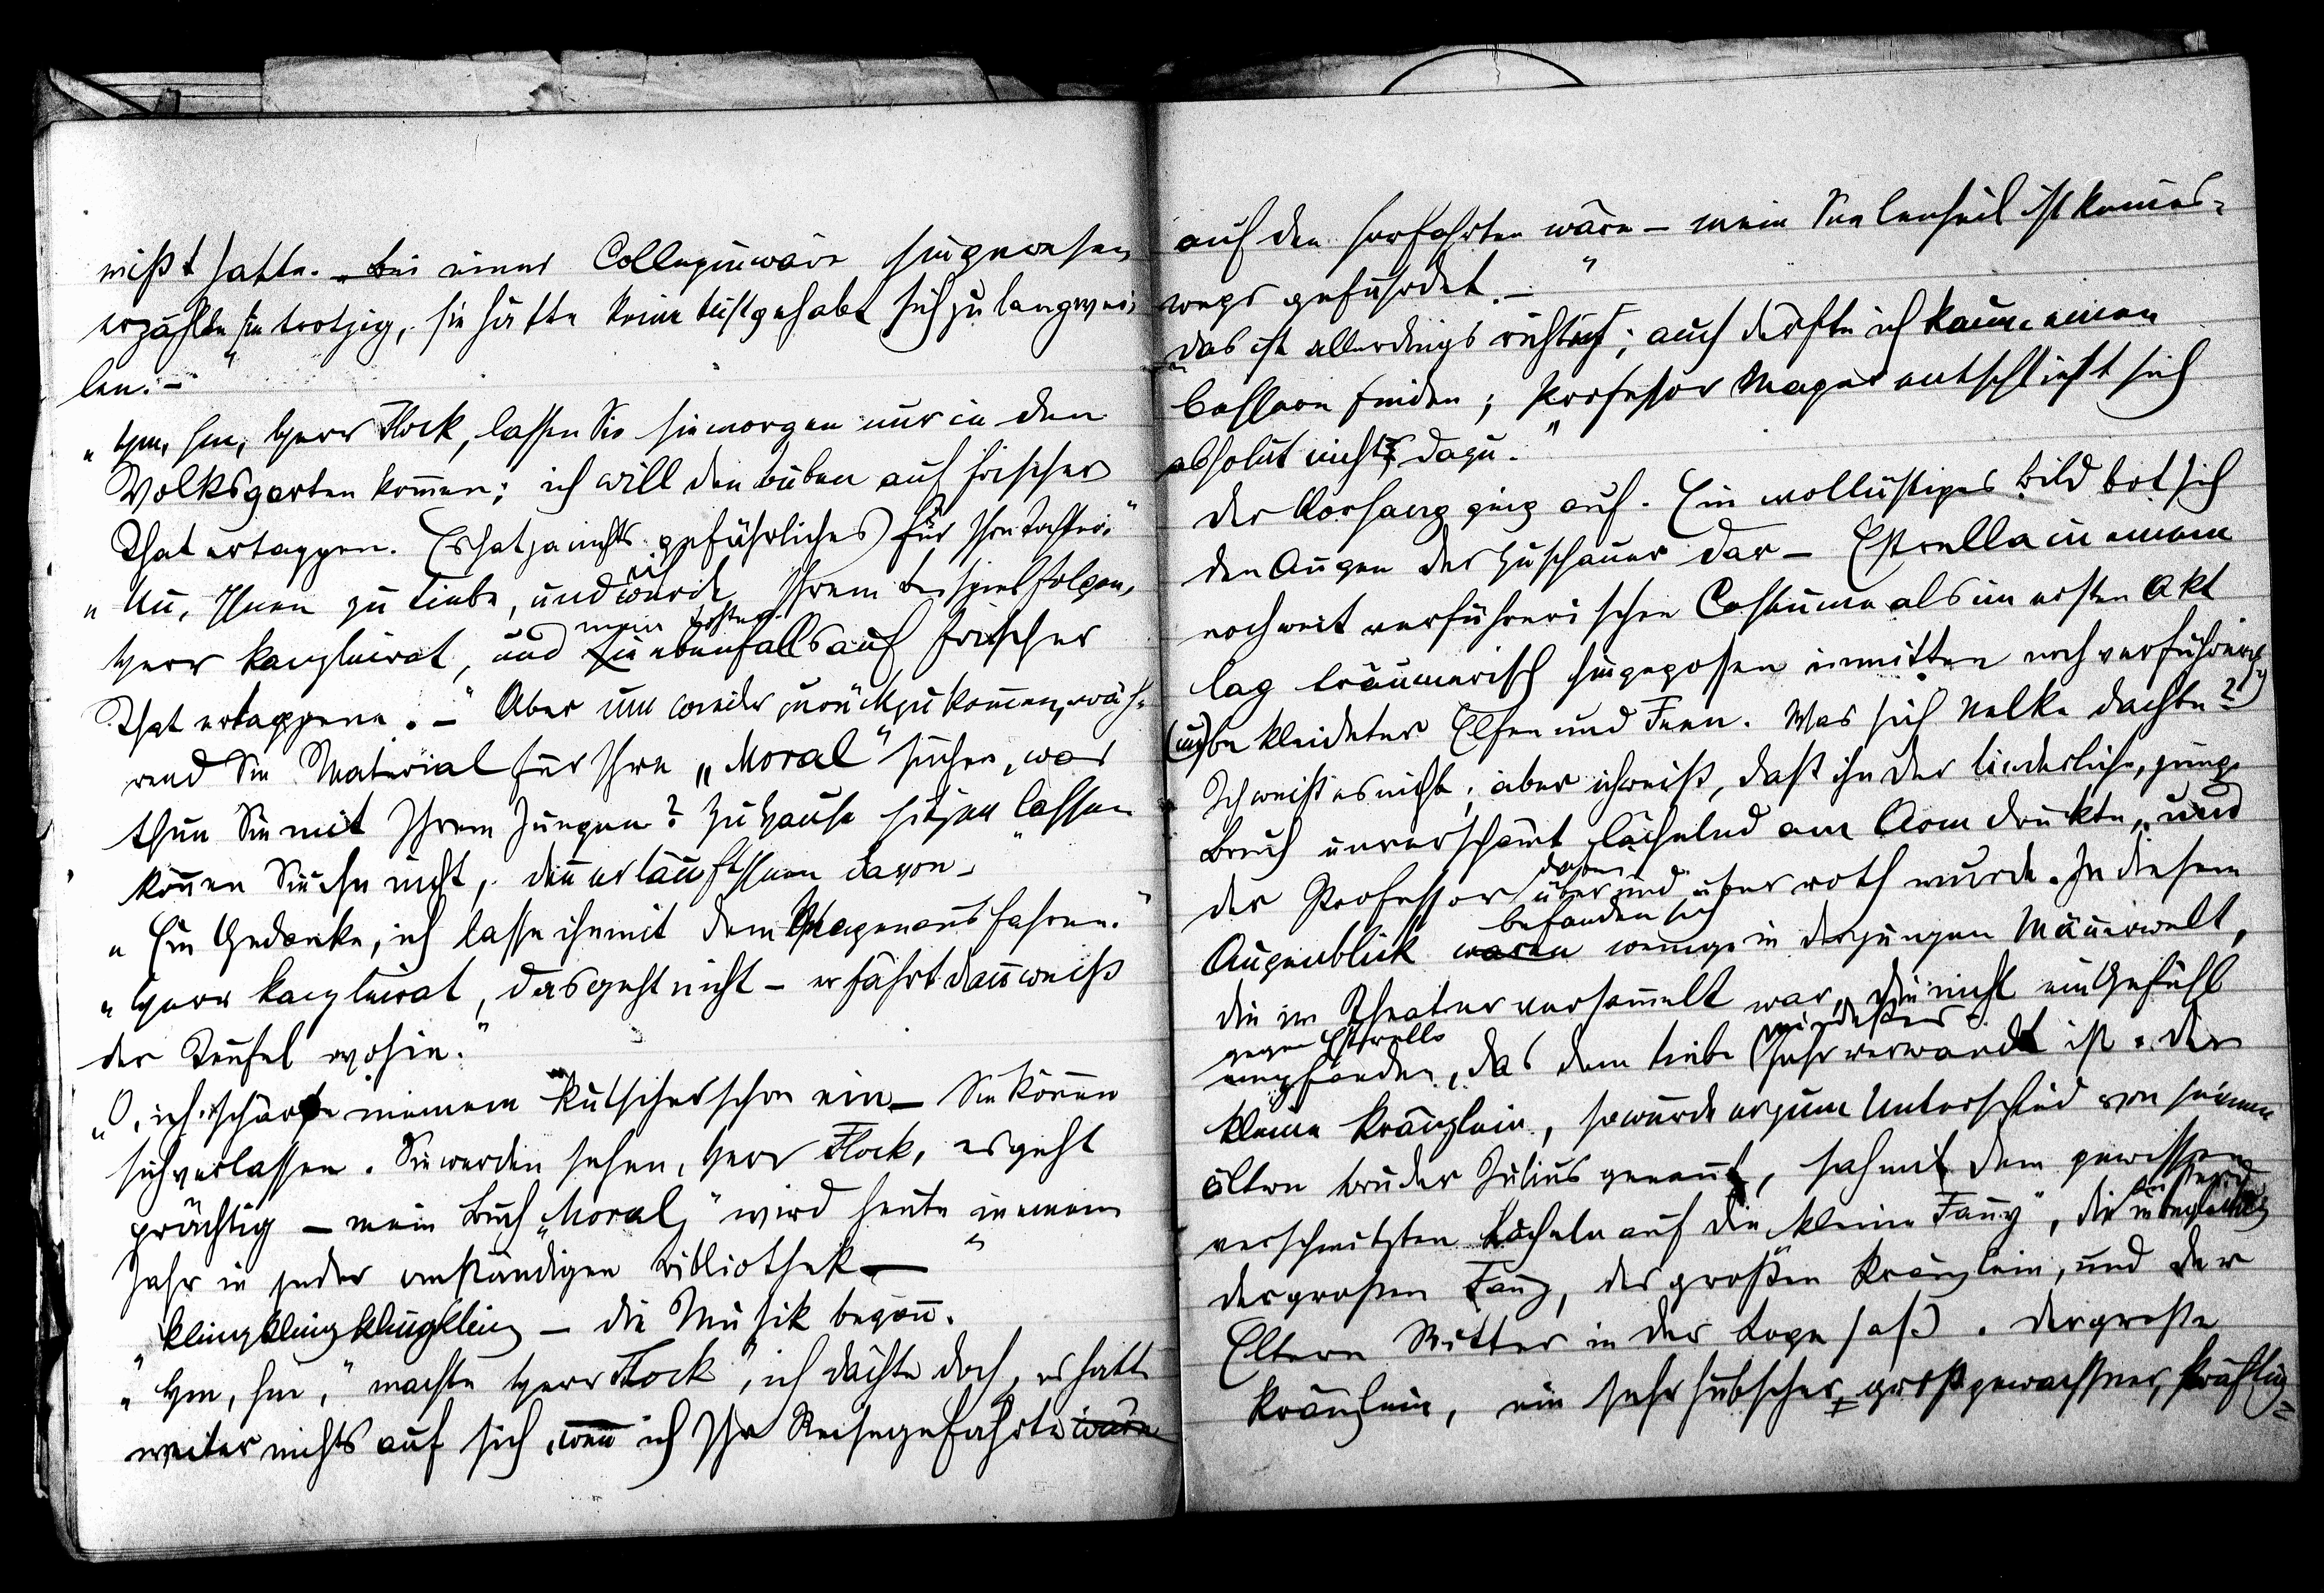 mißt hatte. „Bei einer Collegin wäre sie gewesen
erzählte sie trotzig, sie hätte keine Lust gehabt sich zu langwei-
len. –"
„Hm, hm, Herr Flock, lassen Sie sie morgen nur in den
Volksgarten kommen; ich will den Buben auf frischer
That ertappen. Es hat ja nichts gefährliches für Ihre Tochter."
„Nu, Ihnen zu Liebe, und ich werde Ihrem Beispiel folgen,
meine Tochter
Herr Kanzleirat, und sie ebenfalls auf frischer
That ertappen. –" Aber um wieder zurückzukommen, wäh-
rend Sie Material für Ihre „Moral" suchen, was
thun Sie mit Ihrem Jungen? Zu Hause sitzen lassen
können Sie ihn nicht, denn er läuft Ihnen davon –"
„Ein Gedanke, ich lasse ihn mit dem Wagen ausfahren."
„Herr Kanzleirat, das geht nicht – er fährt dann weiß
der Teufel wohin."
„O, ich schärfe meinem Kutscher schon ein – Sie können
sich verlassen. Sie werden sehen, Herr Flock, es geht
prächtig – mein Buch „Moral," wird heute in einem
Jahr in jeder anständigen Bibliothek –"
„Klingklingklingkling – die Musik begann.
„Hm, hm," machte Herr Flock, „ich dächte doch, es hätte
weiter nichts auf sich, wenn ich Ihr Reisegefährte wäre
auf den Irrfahrten wäre – mein Seelenheil ist keines-
wegs gefährdet. –"
„Das ist allerdings richtig; auch dürfte ich kaum einen
bessern finden; Professor Mager entschließt sich
absolut nicht dazu."
Der Vorhang ging auf. Ein wollüstiges Bild bot sich
den Augen der Zuschauer dar – Estrella in einem
noch weit verführerischen Costüme als im ersten Akt
lag träumerisch hingegossen inmitten noch verführerisch
(un)bekleideter Elfen und Feen. Was sich Nelke dachte?
Ich weiß es nicht; aber ich weiß, daß ihn der liederliche, junge
Bruch unverschämt lächelnd am Arm drückte, und
dabei
der Professor über und über roth wurde. In diesem
befanden sich
Augenblick waren wenige in der jungen Männerwelt,
die im Theater versammelt war, die nicht ein Gefühl
gegen Estrella mindestens
empfanden, das dem Liebe sehr verwandt ist. Der
kleine Kränzlein, so wurde er zum Unterschied von seinem
ältern Bruder Julius genannt, sah mit dem gewissen
verschmitzten Lächeln auf die kleine Fanny", die in Begleitung
der großen Fanny, des großen Kränzlein, und der
Eltern Mutter in der Loge saß. Der große
Kränzlein, ein sehr hübscher, großgewachsner, kräftig-